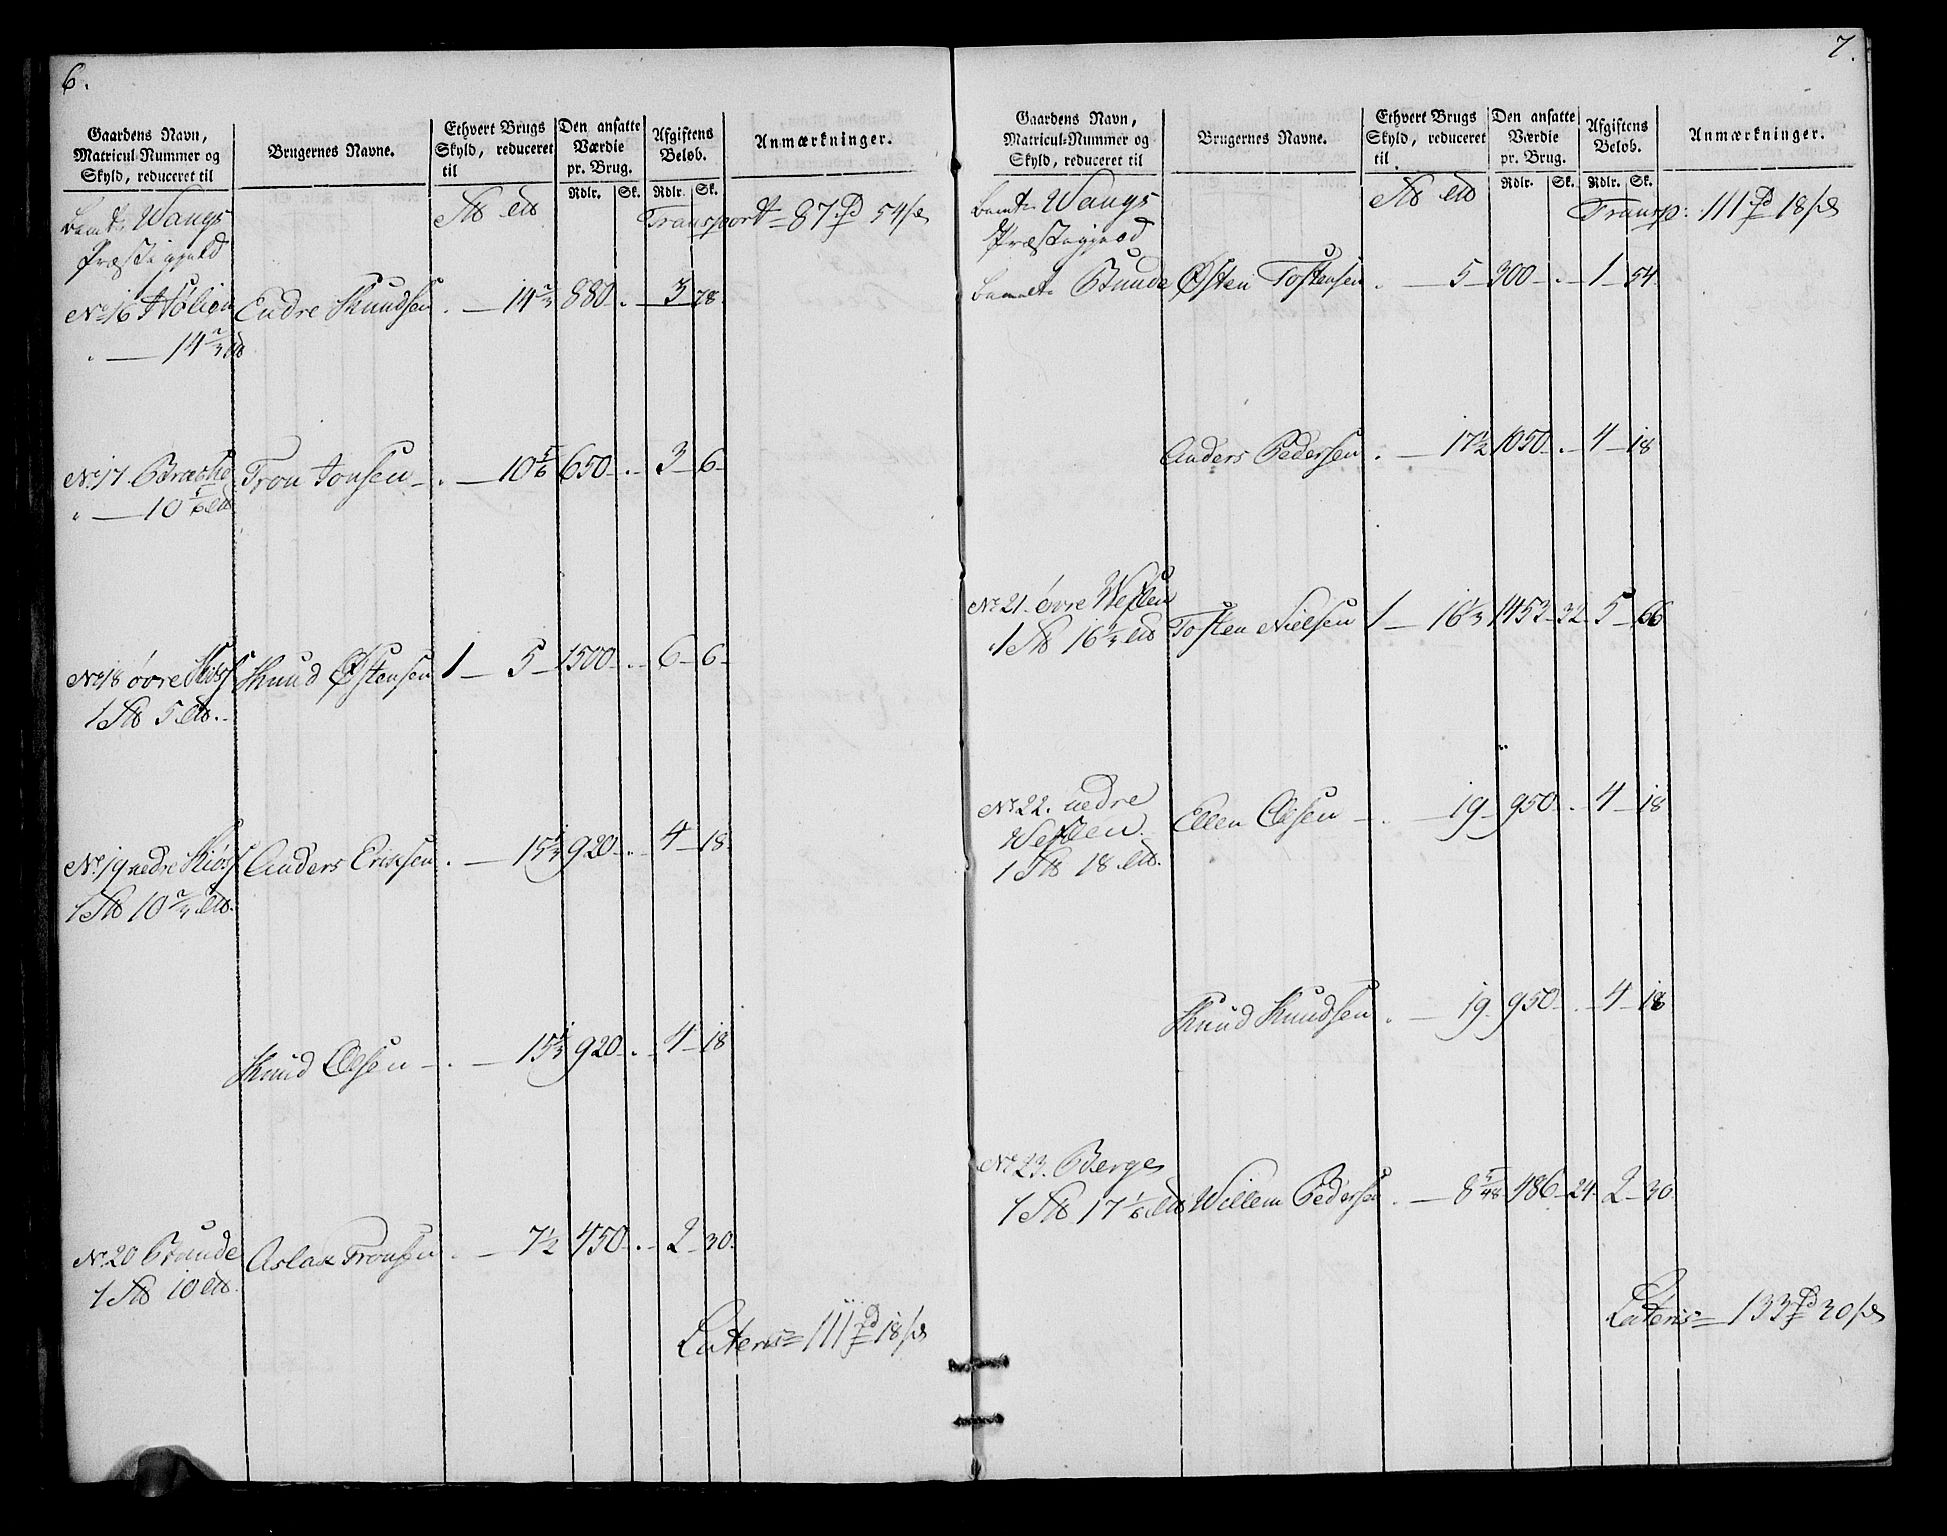 6.
Gaardens Navn, Matricul-Nummer og Skyld, reduceret til
Brugernes Navne.
Ethvert Brugs Skyld, reduceret til
Den ansatte Værdie pr. Brug.
Rdlr. Sk.
Afgiftens Beløb.
Rdlr. Sk.
Anmærkninger.
bemte Wangs
Præstegjeld
Transport = 87 rd 54 sk
No 16 Hølien Endre Knudsen . — 14 2/3 880 . 3 78
. — 14 2/3
No 17 Brække Tron Jonsen . — 10 5/6 650 . 3 6
" — 10 5/6
No 18 øvre Kiøs Knud Østensen 1 — 5 1500 . 6 6
1 5
No 19 nedre Kiøs Anders Eriksen . — 15 1/3 920 . 4 18
1 10 2/3
Knud Olsen . — 15 1/3 920 . 4 18
No 20 Bunde Aslak Tronsen . — 7 1/2 450 . 2 30
1 10
Lateris = 111 rd 18 sk
7.
Gaardens Navn, Matricul-Nummer og Skyld, reduceret til
Brugernes Navne.
Ethvert Brugs Skyld, reduceret til
Den ansatte Værdie pr. Brug.
Rdlr. Sk.
Afgiftens Beløb.
Rdlr. Sk.
Anmærkninger.
bemte Wangs
Præstegjeld
Transp: 111 rd 18 sk
bemelte Bunde Østen Tostensen . — 5 300 . 1 54
Anders Pedersen . — 17 1/2 1050 . 4 18
No 21. øvre Weflen Tosten Nielsen 1 — 16 1/3 1453 32 5 66
1 16 1/3
No 22. nedre
Weflen Ellen Olsen . — 19 950 . 4 18
1 18
Knud Knudsen . — 19 950 . 4 18
No 23. Berge
1 17 1/6 Willem Pedersen . — 8 5/48 486 24 2 30
Lateris = 133 rd 30 sk